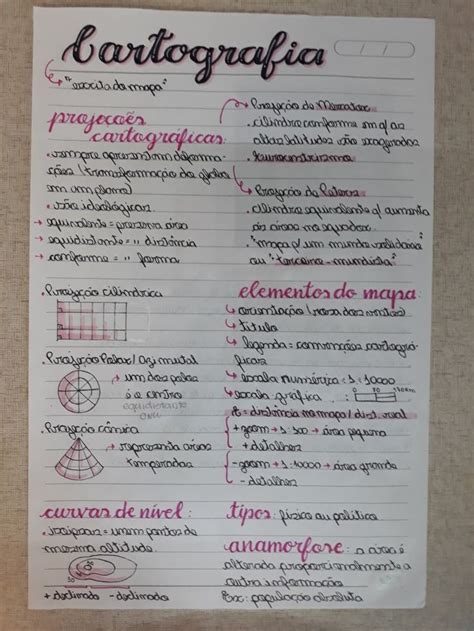 Cartografia
"escrita do mapa"
projeções
cartográficas:
• sempre apresentam deforma-
ções (transformação do globo
em um plano)
• são ideológicas.
→ equivalente = preserva área
→ equidistante = " distância
→ conforme = " forma
• Projeção cilíndrica
• Projeção Polar/Azimutal
→ um dos polos
é o centro
equidistante
• Projeção cônica
→ representa áreas
temperadas
curvas de nível:
• isoípsas = unem pontos de
mesma altitude.
+ declinado - declinado
→ Projeção de Mercator
• cilindro conforme em q/ as
altas latitudes são exageradas
• eurocentrismo
→ Projeção de Peters
• cilindro equivalente q/ aumenta
as áreas no equador.
• "mapa p/ um mundo solidário"
ou "terceiro-mundista"
elementos do mapa:
→ orientação (rosa dos ventos)
→ título
→ legenda = convenções cartográ-
ficas
→ escala numérica = 1:10000
→ escala gráfica =
E = distância no mapa / dist. real
+ zoom → 1:500 → área pequena
+ detalhes
- zoom → 1:10000 → área grande
- detalhes
tipos: físico ou político
anamorfose: a área é
alterada proporcionalmente a
outra informação
Ex: população absoluta